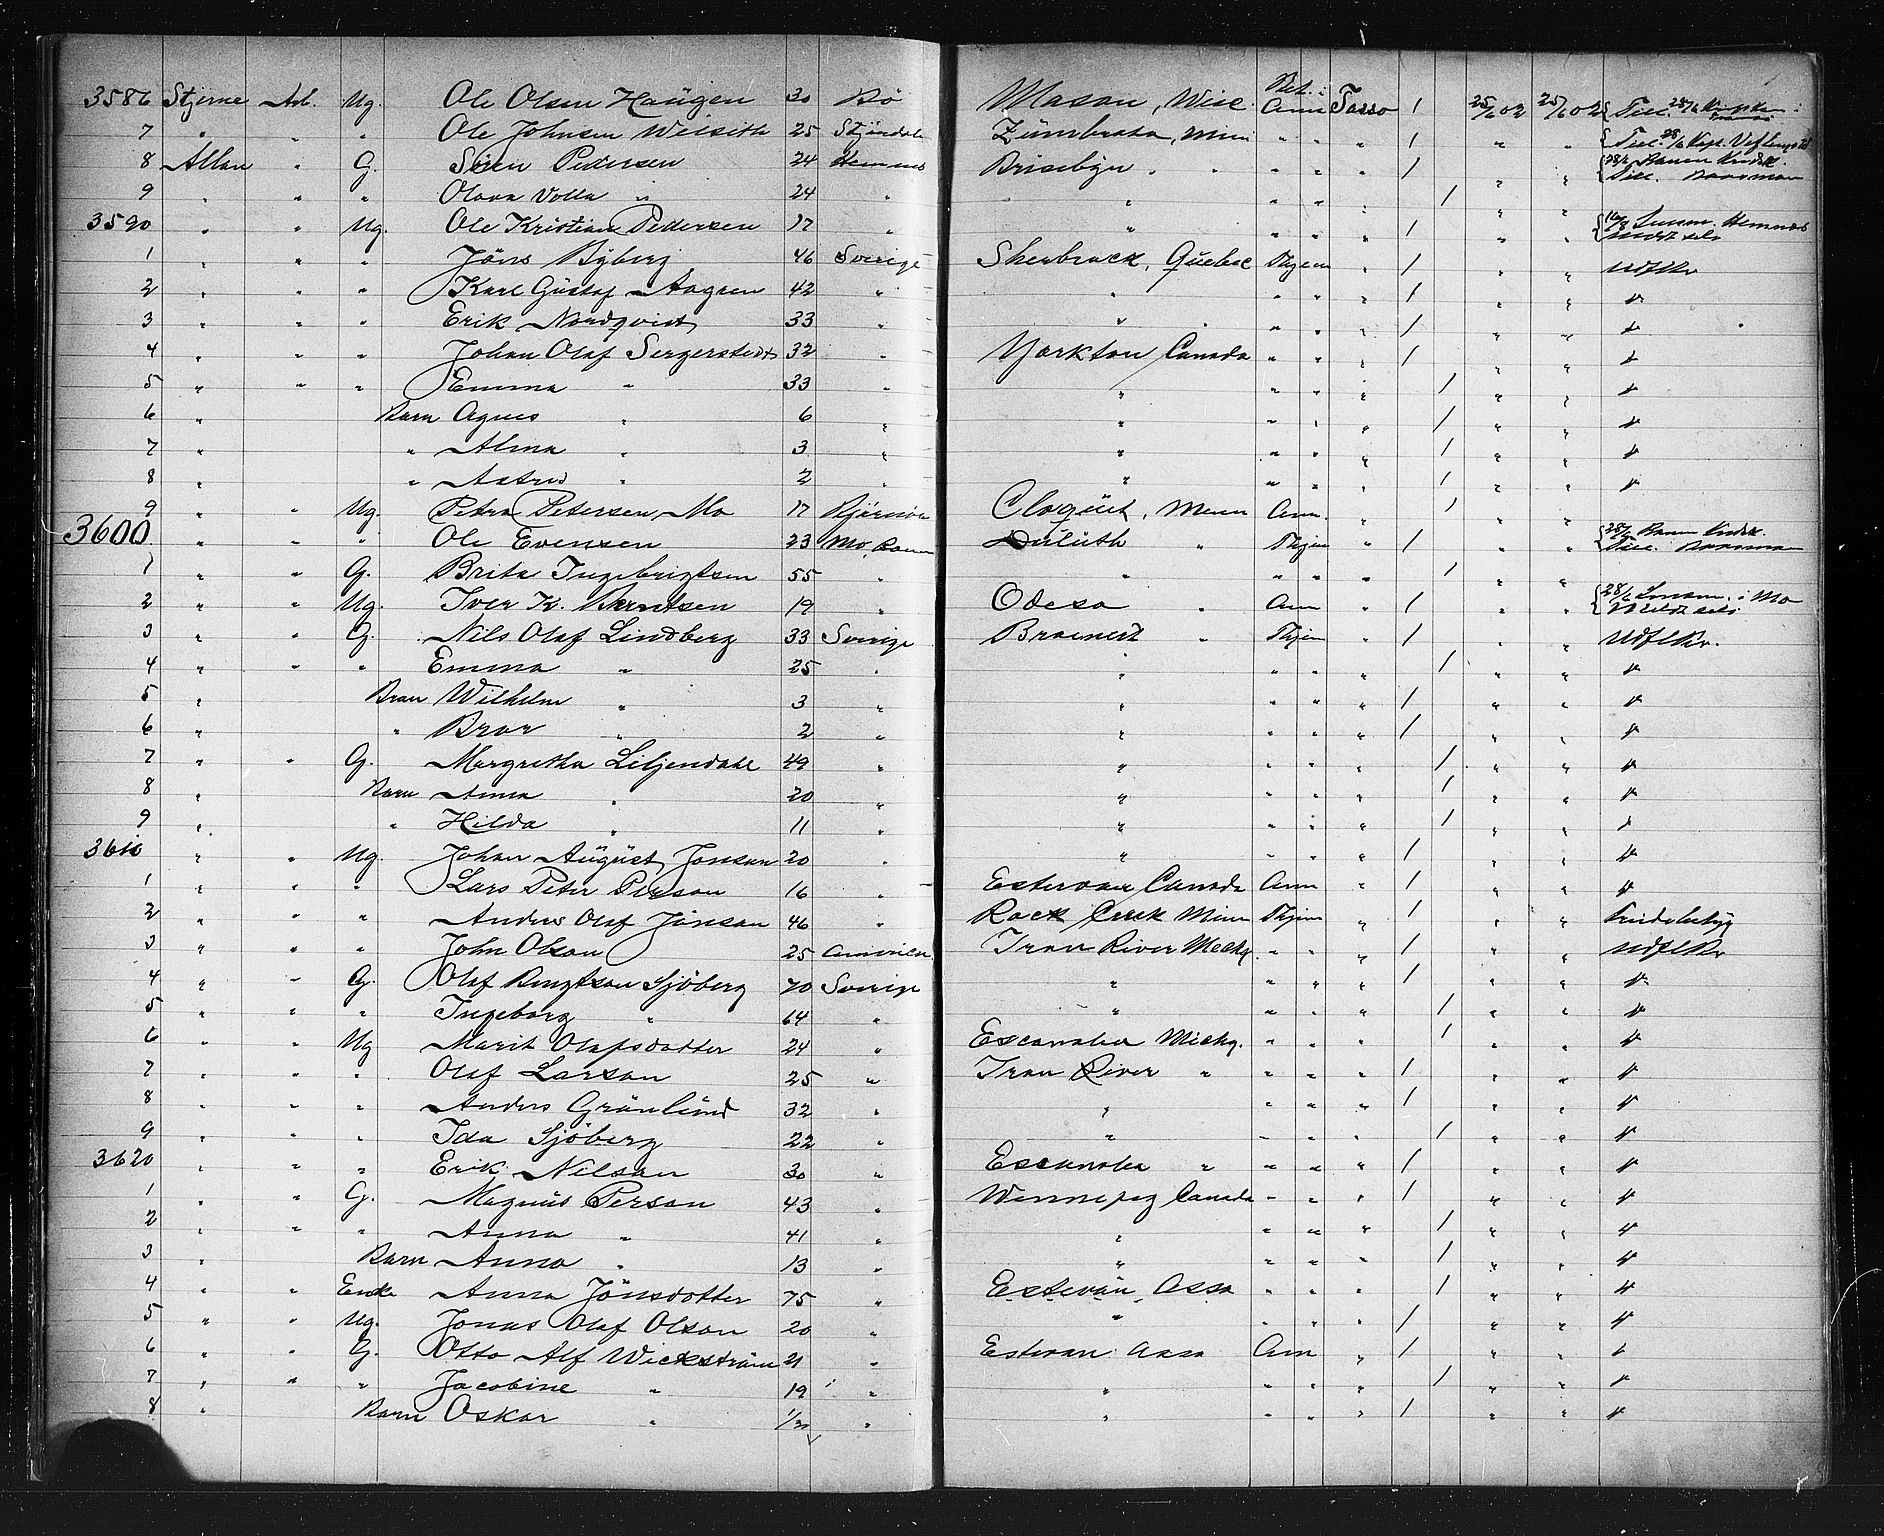 3586 Stjerne Arb. Ug. Ole Olsen Haugen 30 Bö Mason, Wisc. Bet. i Am Tasso 1 25/6 02 25/6 02
7 " " " Ole Johnsen 25 Stjördalen Zümbrota, Minn " " " 1 " "
8 Allan " G. Sören Pedersen 24 Hemnes " " " 1 " "
9 " " " Olava Volla " 24 " " " " " 1 " "
3590 " " Ug. Ole Kristian Pedersen 17 " " " " " 1 " "
1 " " " Jöns Byberg 46 Sverige Sherbrock, Quebec Hjem " 1 " " Udflkv
2 " " " Karl Gustaf 42 " " " " " 1 " " "
3 " " " Erik Nordqvist 33 " " " " " 1 " " "
4 " " " Johan Olaf Sergerstedt 32 " Yorkton Canada " " " 1 " " "
5 " " " Emma " 33 " " " " " 1 " " "
6 " Barn Agnes " 6 " " " " " 1 " " "
7 " " Alma " 3 " " " " " 1 " " "
8 " " Astrid " 2 " " " " " 1 " " "
9 " " Ug. Petra Petersen, Mo 17 Cloqüet, Minn Am. " 1 " "
3600 " " " Ole Evensen 23 Mo Ranen Duluth " Hjem " 1 " "
1 " " G. Brita Ingebrigtsen 55 " " " " " 1 " "
2 " " Ug. Iver K. Berntsen 19 " Odesa " Am " 1 " "
3 " " G. Nils Olaf Lindberg 33 Sverige " Hjem " 1 " " Udflkv.
4 " " " Emma " 25 " " " " " 1 " " "
5 " Bran Wilhelm " 3 " " " " " 1 " " "
6 " " Bror " 2 " " " " " 1 " " "
7 " " G. Margretha Liljendahl 49 " " " " " 1 " " "
8 " Barn Anna " 20 " " " " " 1 " " "
9 " " Hilda " 11 " " " " " 1 " " "
3610 " " Ug. Johan August Jonson 20 " " " " " 1 " " "
1 " " " Lars Peter Person 16 " Estervan Canada Am " 1 " " "
2 " " " Anders Olaf Jönson 46 " Rock Creek Minn Hjem " 1 " "
3 " " " John Olson 25 Amerika Iron River Michg. " " " 1 " " Udflkv
4 " " G. Olaf Bengtson Sjöberg 70 Sverige " " " " 1 " " "
5 " " " Ingeborg " 64 " " " " " 1 " " "
6 " " Ug Marit Olafsdotter 24 " Escanaba Michg. " " " 1 " " "
7 " " " Olaf Larson 25 " Iron River " " " " 1 " " "
8 " " " Anders Grönlünd 32 " " " " " 1 " " "
9 " " " Ida Sjöberg 22 " " " " " 1 " " "
3620 " " " Erik Nilson 30 " Escanaba " " " " 1 " " "
1 " " G. Magnus Person 43 " Winnepeg Canada " " " 1 " " "
2 " " " Anna " 41 " " " " " 1 " " "
3 " Barn Anna " 13 " " " " " 1 " " "
4 " " Enke Anna Jönsdotter 75 " Estevan Assa " " " 1 " " "
5 " " Ug. Jonas Olaf Olson 20 " " " " " 1 " " "
6 " " G. Otto Alf Wickström 21 " Estevan Assa Am " 1 " " "
7 " " " Jacobine " 19 " " " " " 1 " " "
8 " Barn Oskar " " " " " " 1 " " "